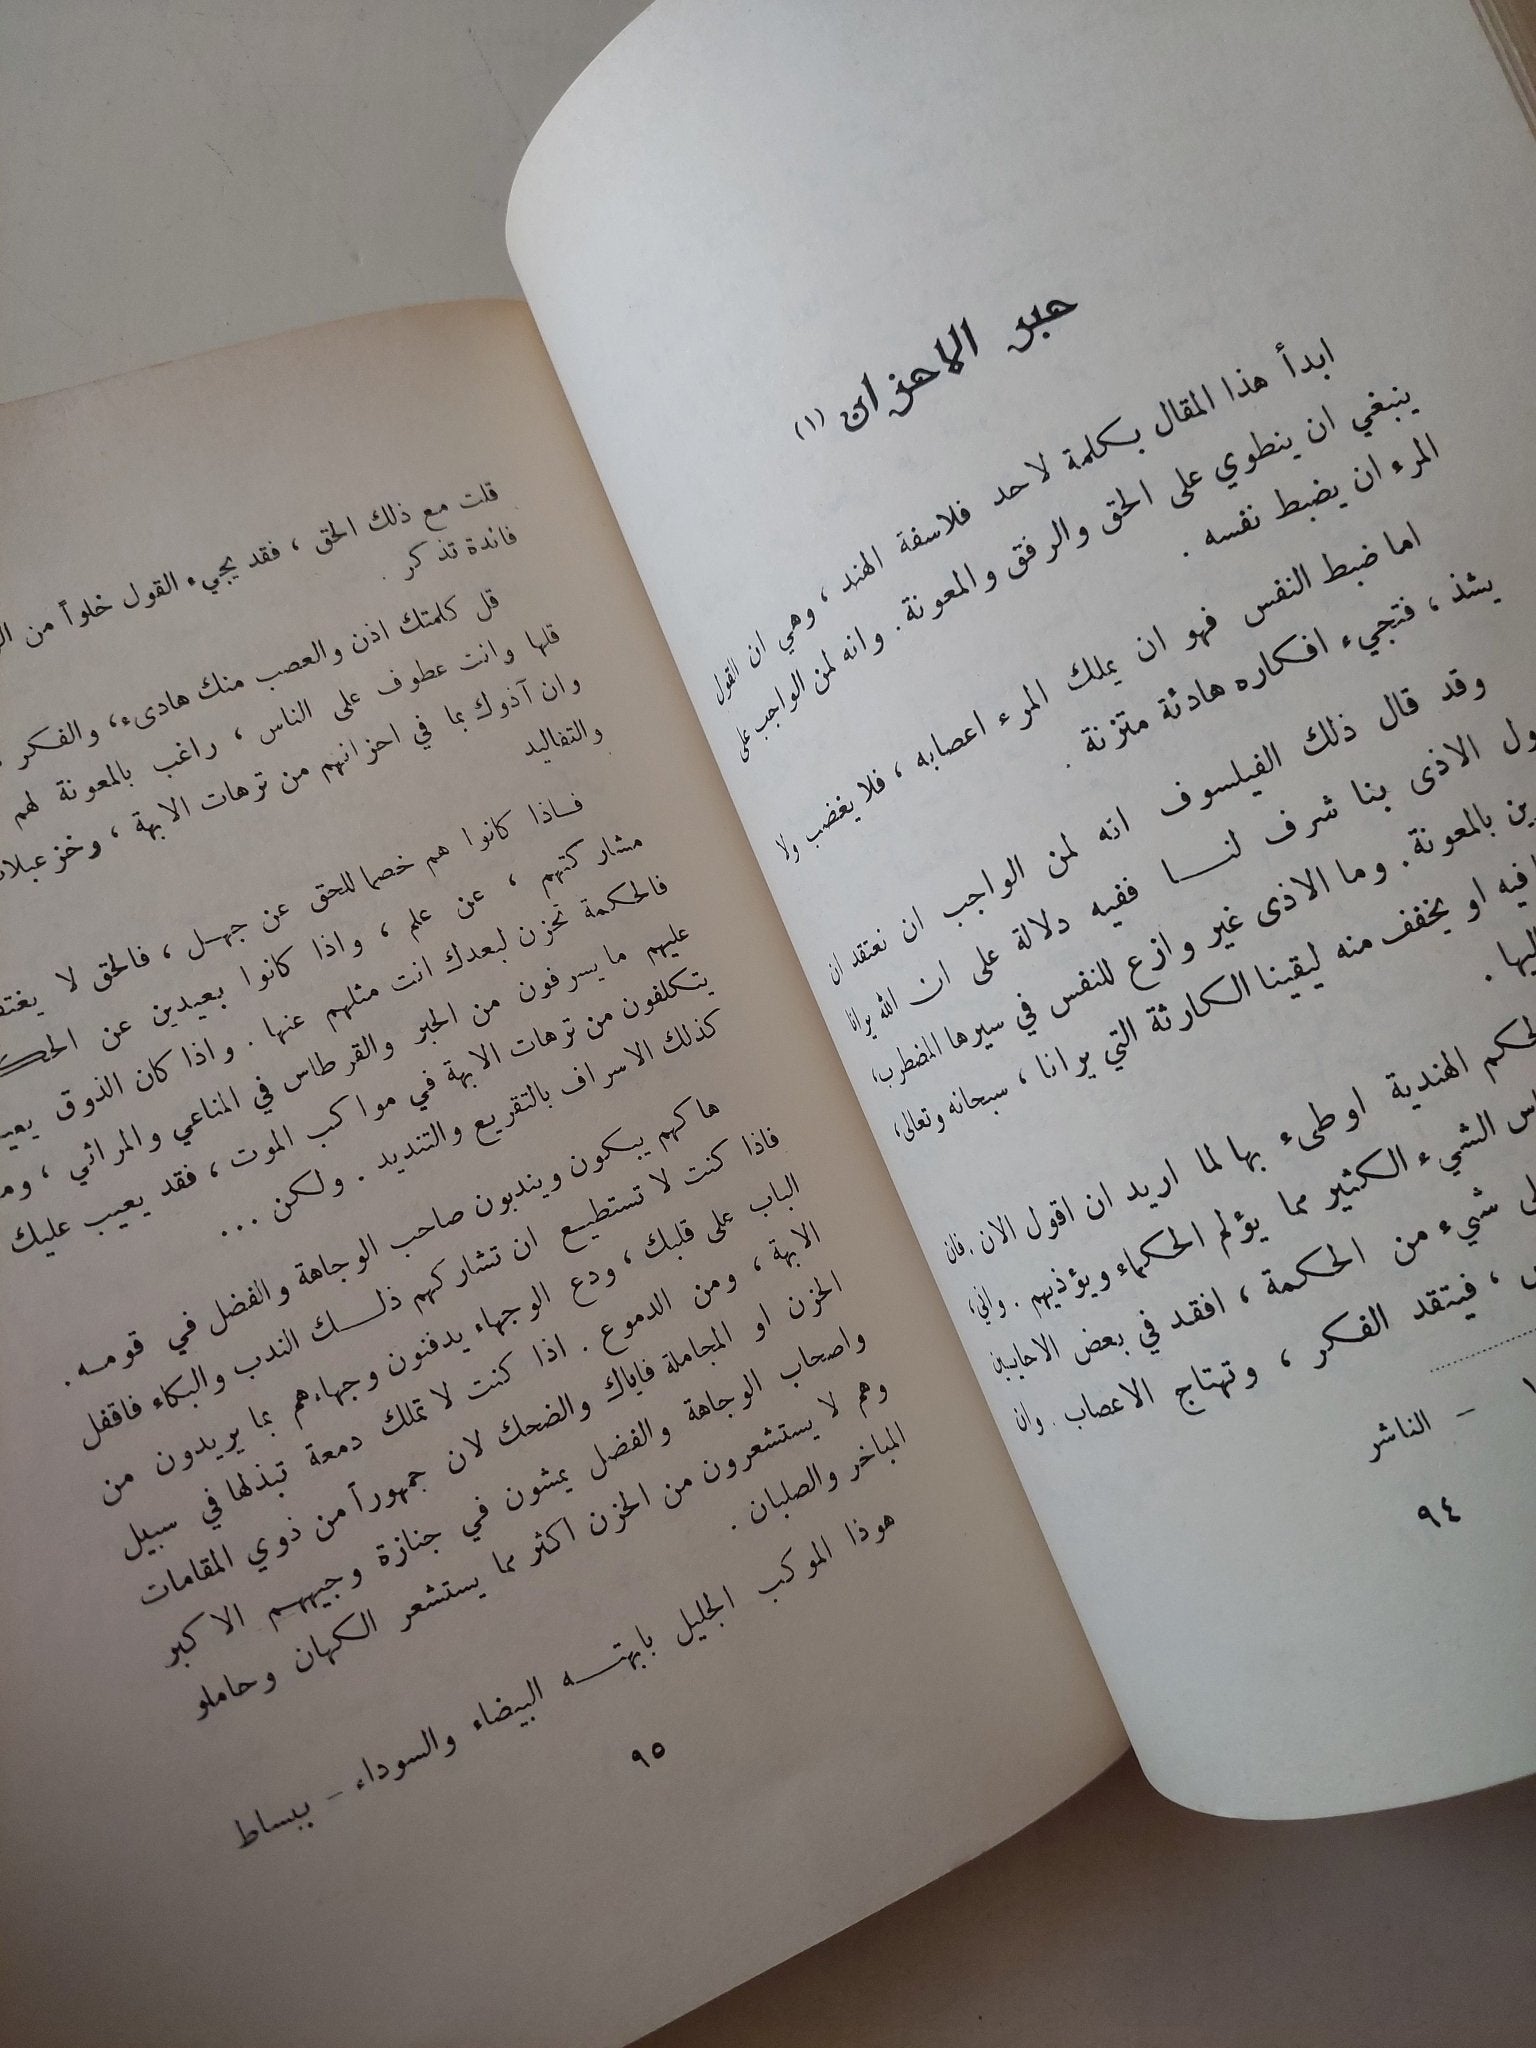 حبر الاحزان (١)
ابدأ هذا المقال بكلمة لاحد فلاسفة الهند ، وهي ان القول
ينبغي ان ينطوي على الحق والرفق والمعونة . وانه لمن الواجب على
المرء ان يضبط نفسه .
اما ضبط النفس فهو ان يملك المرء اعصابه ، فلا يغضب ولا
يشذ ، فتجيء افكاره هادئة متزنة .
وقد قال ذلك الفيلسوف انه لمن الواجب ان نعتقد ان
الاذى بنا شرف لنا ففيه دلالة على ان الله يرانا
بالمعونة . وما الاذى غير وازع للنفس في سيرها المضطرب ،
فيه او يخفف منه ليقينا الكارثة التي يرانا ، سبحانه وتعالى ،
الهندية اوطىء بها لما اريد ان اقول الان . فان
الشيء الكثير مما يؤلم الحكماء ويؤذيهم . واني ،
شيء من الحكمة ، افقد في بعض الاحايين
، فيتقد الفكر ، وتهتاج الاعصاب . وان
– الناشر
٩٤
قلت مع ذلك الحق ، فقد يجيء القول خلواً من
فائدة تذكر .
قل كلمتك اذن والعصب منك هادىء ، والفكر
قلها وانت عطوف على الناس ، راغب بالمعونة لهم
وان آذوك بما في احزانهم من ترهات الابهة ، وخزعبلات
والتقاليد
فاذا كانوا هم خصما للحق عن جهل ، فالحق لا
مشاركتهم ، عن علم ، واذا كانوا بعيدين عن
فالحكمة تحزن لبعدك انت مثلهم عنها . واذا كان الذوق
عليهم ما يسرفون من الحبر والقرطاس في المناعي والمراثي ،
يتكلفون من ترهات الابهة في مواكب الموت ، فقد يعيب عليك
كذلك الاسراف بالتقريع والتنديد . ولكن ...
هاكهم يبكون ويندبون صاحب الوجاهة والفضل في قومه .
فاذا كنت لا تستطيع ان تشاركهم ذلك الندب والبكاء فاقفل
الباب على قلبك ، ودع الوجهاء يدفنون وجهاءهم بما يريدون من
الابهة ، ومن الدموع . اذا كنت لا تملك دمعة تبذلها في سبيل
الحزن او المجاملة فاياك والضحك لان جمهوراً من ذوي المقامات
واصحاب الوجاهة والفضل يمشون في جنازة وجيههم الاكبر
وهم لا يستشعرون من الحزن اكثر مما يستشعر الكهان وحاملو
المباخر والصلبان .
هوذا الموكب الجليل بابهته البيضاء والسوداء – ببساط
٩٥